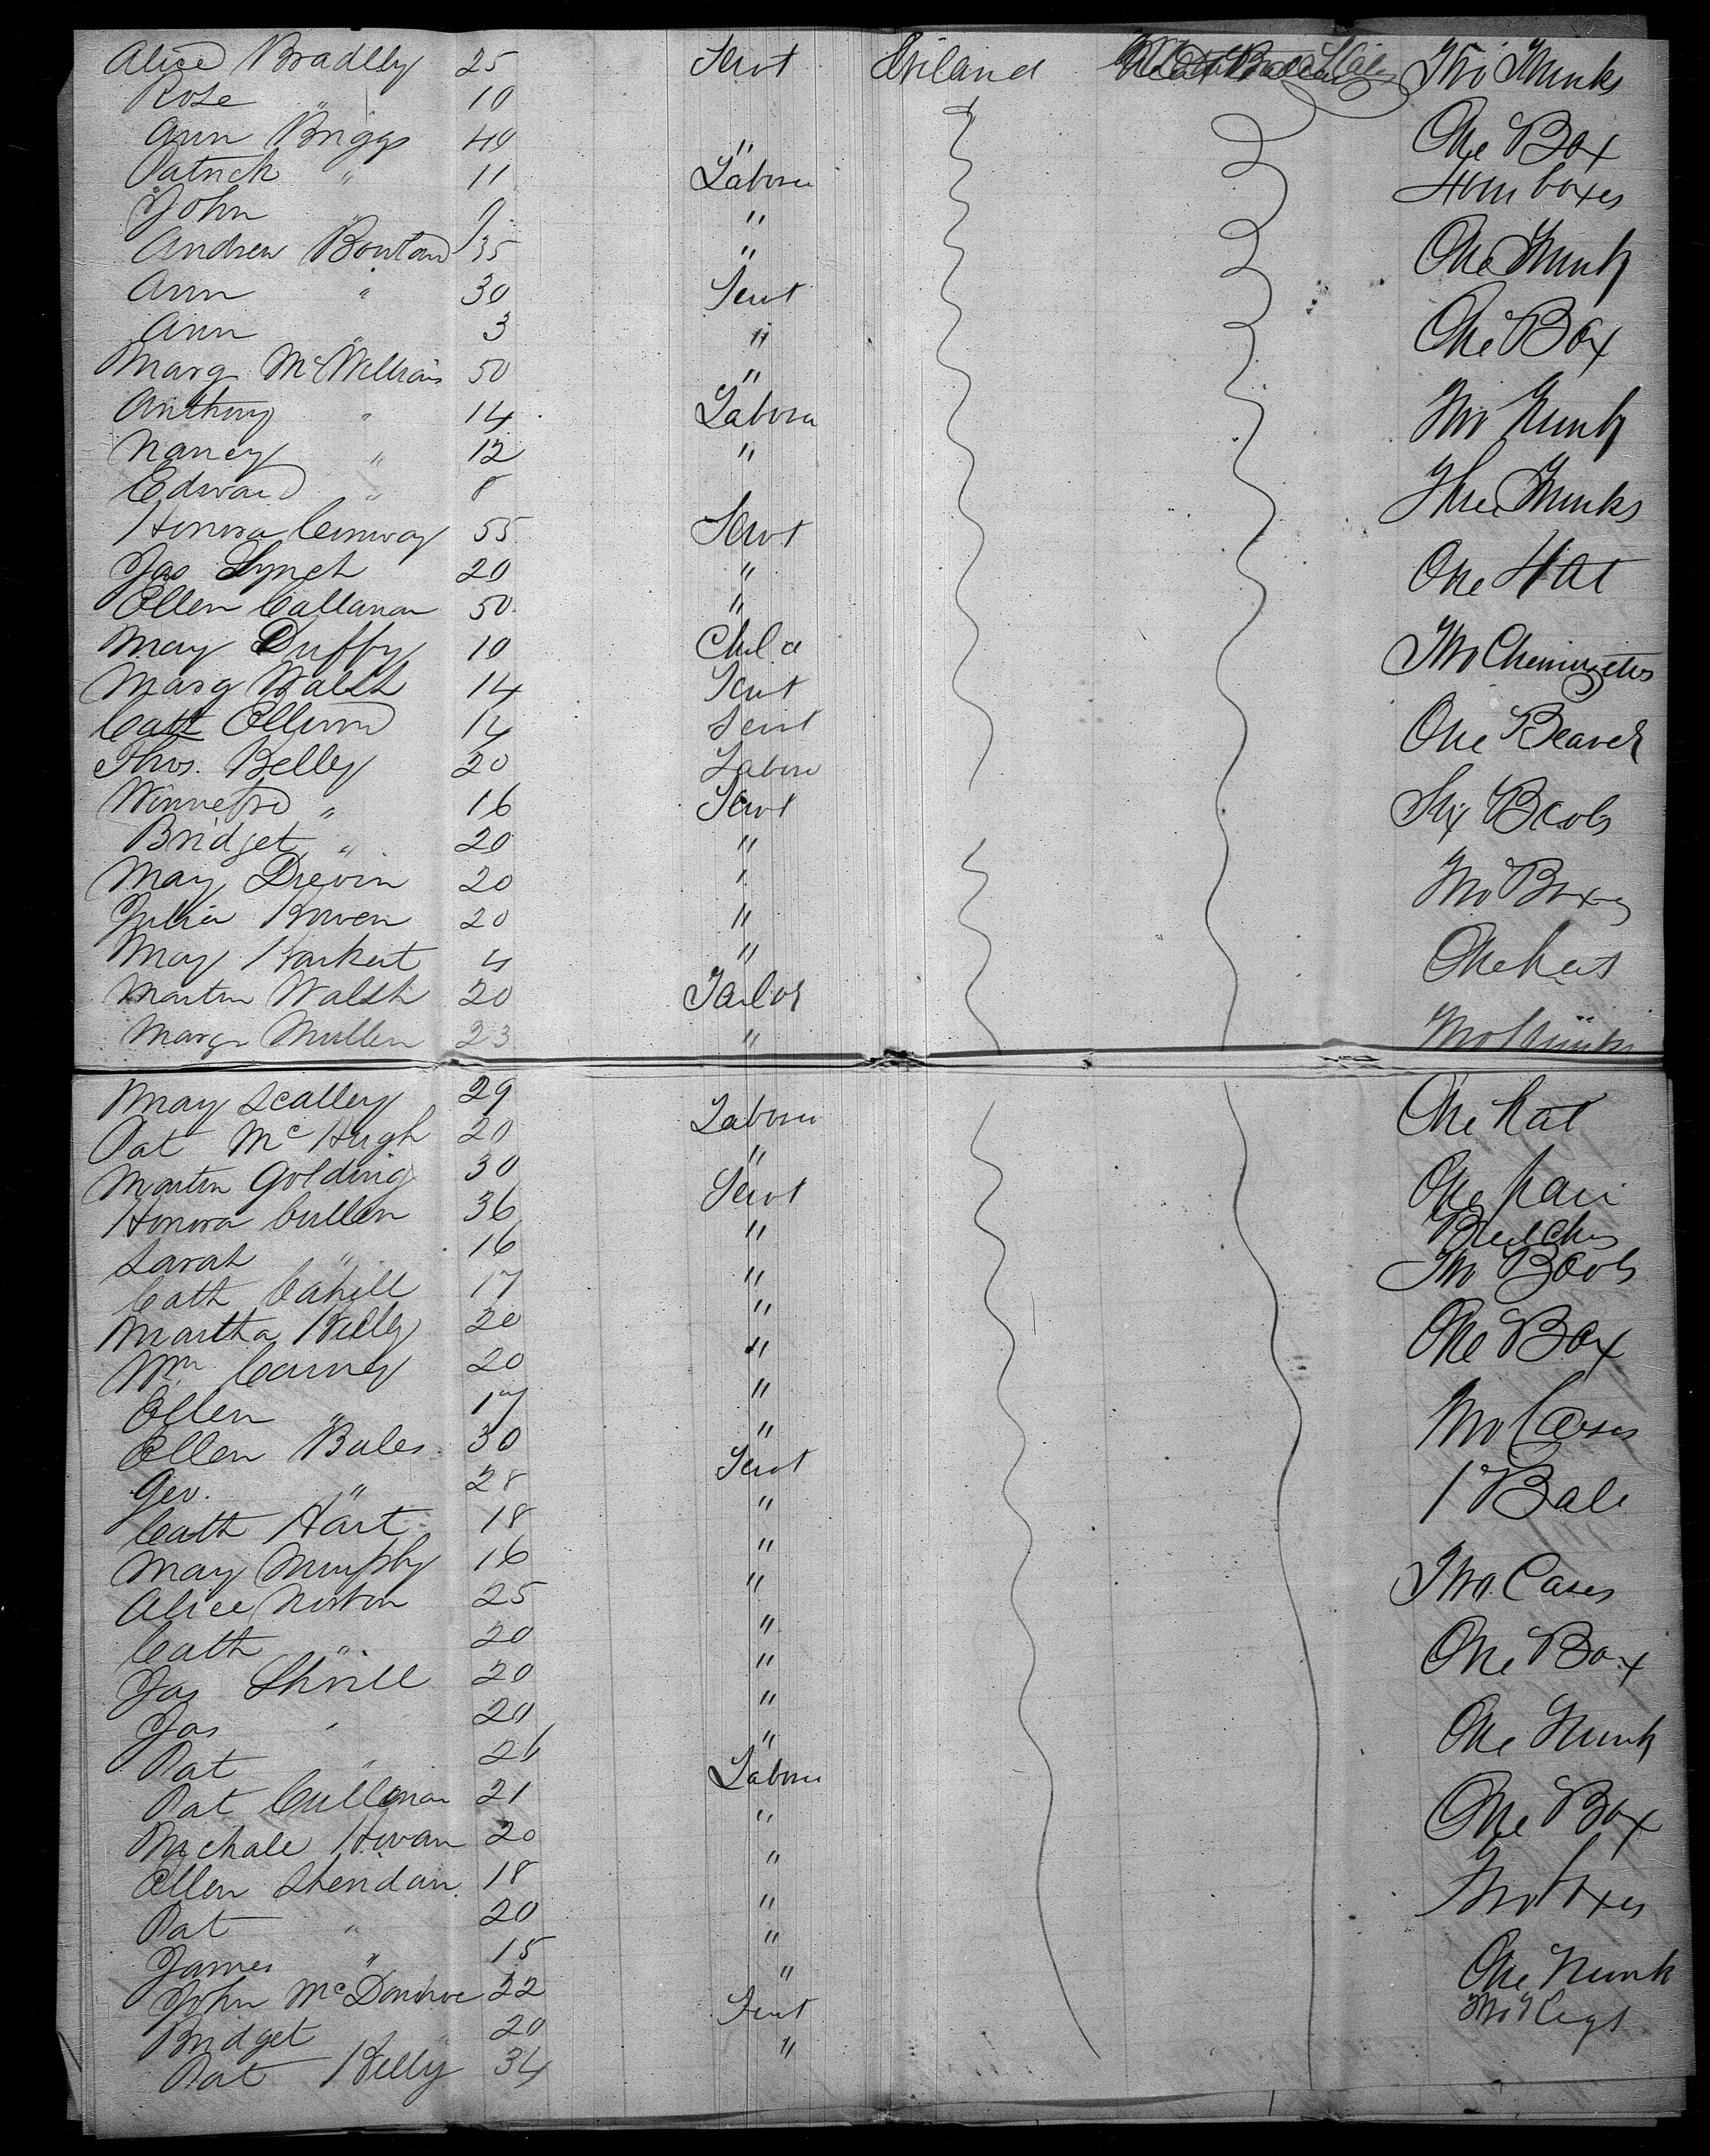 Alice Bradlly 25 Servt Ireland Two Trunks
Rose " 10
Ann Briggs 40 " One Box
Patrick " 11 Labour Four boxes
John " 9 "
Andrew 35 " One Trunk
Ann " 30 Servt
Ann " 3 " One Box
Marg McWilliams 50 "
Anthony " 14 Labour Two Trunk
Nancy " 12 "
Edward " 8 Three Trunks
Honora Conway 55 Servt
Jas Lynch 20 " One Hat
Ellen Callanan 50 "
May Duffy 10 Child Two
Marg Walsh 14 Servt
Cath 14 Servt One Beaver
Thos. Kelly 20 Labour
Winnefred " 16 Servt Six Boots
Bridget " 20 "
May Drevin 20 " Two Boxes
Julia Kowen 20 "
May Harkert 4 " One hat
Martin Walsh 20 Tailor
Marg Mullen 23 " Two Trunks
May Scalley 29 One hat
Pat McHugh 20 Labour
Martin Golding 30 " One pair
Honora Cullen 36 Servt Breeches
Sarah " 16 " Two Boots
Cath Cahill 17 "
Martha Kelly 20 " One Box
Wm Carney 20 "
Ellen " 17 " Two Cases
Ellen Bules 30 "
Geo. " 28 Servt 1 Bale
Cath Hart 18 "
May Murphy 16 " Two Cases
Alice Norton 25 "
Cath " 20 " One Box
Jas 20 "
Jas " 20 " One Trunk
Pat " 26 "
Pat Cullinan 21 Labour One Box
Michale 20 "
Ellen Sheridan 18 " Two boxes
Pat " 20 "
James " 15 " One Trunk
John McDonhoe 22 " Two Kegs
Bridget " 20 Servt
Pat Kelly 34 "